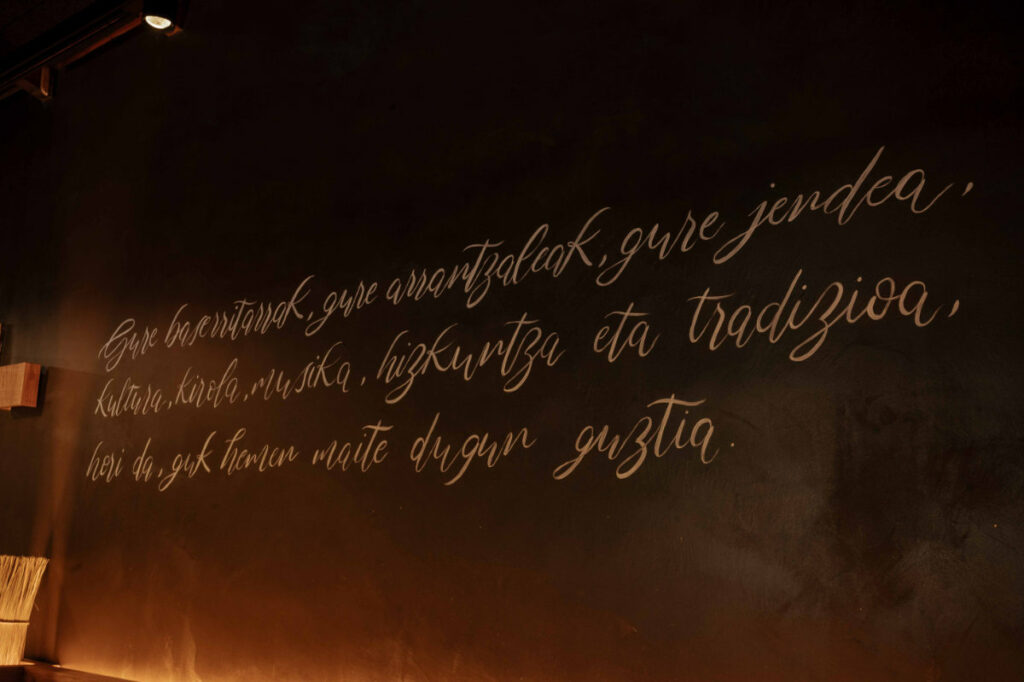 Gure baserritarrak, gure arrantzaleak, gure jendea,
kultura, kirola, musika, hizkuntza eta tradizioa,
hori da, guk hemen maite dugun guztia.